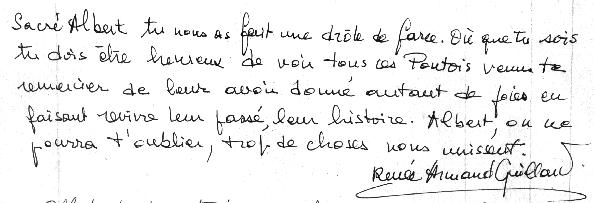 Sacré Albert tu nous as fait une drôle de farce. Où que tu sois
tu dois être heureux de voir tous ces Pontois venus te
remercier de leur avoir donné autant de joies en
faisant revivre leur passé, leur histoire. Albert, on ne
pourra t'oublier, trop de choses nous unissent.
Renée Armand